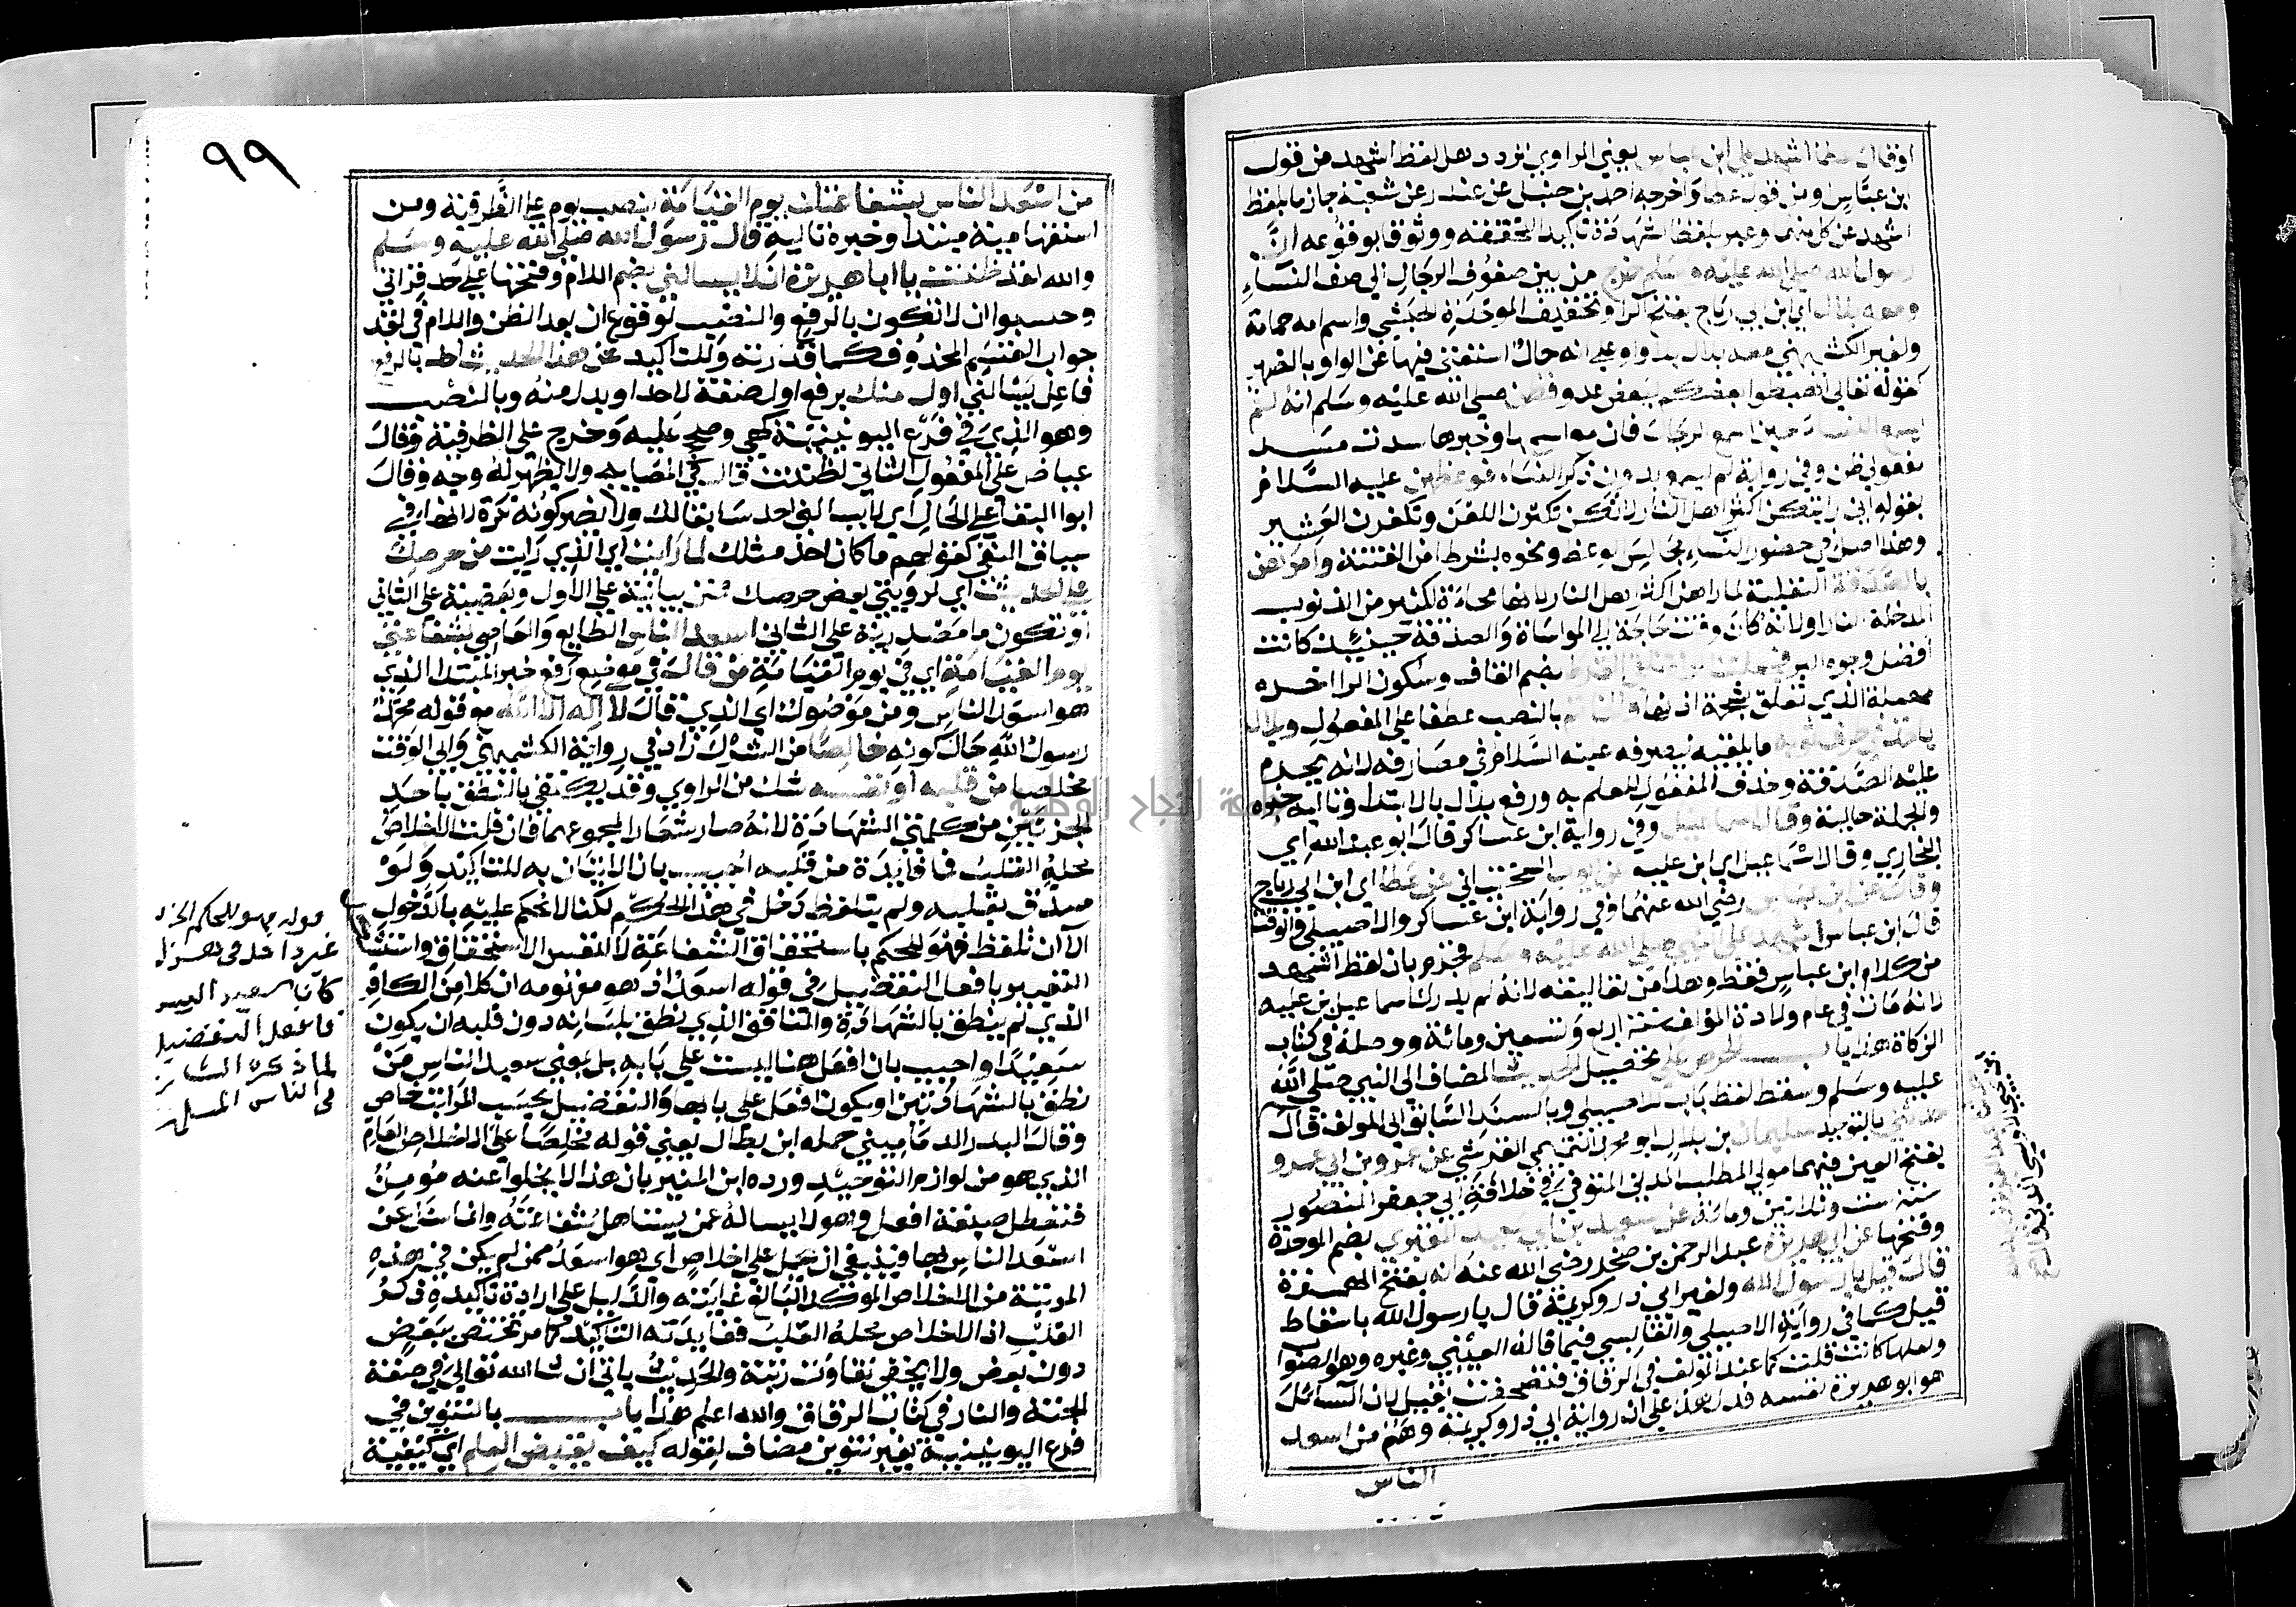 او قال عطا اشهد علي ابن عباس يعني الراوي تردد هل لفظ اشهد من قول
ابن عباس او من قول عطا واخرجه احمد بن حنبل عن غندر عن شعبة جازما بلفظ
اشهد عن كل منهما وعبر بلفظ الشهادة تاكيدا لتحققه ووثوقا بوقوعه ان
رسول الله صلي الله عليه وسلم خرج من بين صفوف الرجال الي صف النساء
ومعه بلال اي ابن ابي رباح بفتح الرا وتخفيف الموحدة الحبشي واسم امه حمامة
ولغير الكشميهني معه بلال بلا واو علي انه حال استغني فيها عن الواو بالضمير
كقوله تعالي اهبطوا بعضكم لبعض عدو فظن صلي الله عليه وسلم انه لم
يسمع النساء حين اسمع الرجال فان مع اسمها وخبرها سدت مسد
مفعولي ظن وفي رواية لم يسمع بدون ذكر النساء فوعظهن عليه السلام
بقوله اني رايتكن اكثر اهل النار لانكن تكثرن اللعن وتكفرن العشير
وهذا اصل في حضور النساء مجالس الوعظ ونحوه بشرط امن الفتنة وامرهن
بالصدقة النفلية لما راهن اكثر اهل النار لانها ممحاة لكثير من الذنوب
المدخلة النار او لانه كان وقت حاجة الي المواساة والصدقة حينئذ كانت
افضل وجوه البر فجعلت المراة تلقي القرط بضم القاف وسكون الرا اخره
مهملة الذي تعلق بشحمة اذنها والخاتم بالنصب عطفا علي المفعول وبلال
ياخذ في طرف ثوبه ما يلقينه ليصرفه عليه السلام في مصارفه لانه يحرم
عليه الصدقة وحذف المفعول للعلم به ورفع بلال بالابتدا وتاليه خبره
والجملة حالية وقال اسماعيل وفي رواية ابن عساكر قال ابو عبد الله اي
البخاري وقال اسماعيل اي ابن علية عن ايوب السختياني عن عطا اي ابن ابي رباح
وقال عن ابن عباس رضي الله عنهما وفي رواية ابن عساكر والاصيلي والوقت
قال ابن عباس اشهد علي النبي صلي الله عليه وسلم فجزم بان لفظ اشهد
من كلام ابن عباس فقط وهذا من تعاليقه لانه لم يدرك اسماعيل بن علية
لانه مات في عام ولادة المولف سنة اربع وتسعين ومائة ووصله في كتاب
الزكاة هذا باب الحرص علي تحصيل الحديث المضاف الي النبي صلي الله
عليه وسلم وسقط لفظ باب للاصيلي وبالسند السابق الي المولف قال
حدثني بالتوحيد سليمان بن بلال ابو محمد التيمي القرشي عن عمرو بن ابي عمرو
بفتح العين فيهما مولي المطلب المدني المتوفي في خلافة ابي جعفر المنصور
سنة ست وثلاثين ومائة عن سعيد بن ابي سعيد المقبري بضم الموحدة
وفتحها عن ابي هريرة عبد الرحمن بن صخر رضي الله عنه انه بفتح الهمزة
قال قيل يا رسول الله ولغير ابي ذر وكريمة قال يا رسول الله باسقاط
قيل كما في رواية الاصيلي والقابسي فيما قاله العيني وغيره وهو الصواب
ولعلها كانت قلت كما عند المولف في الرقاق فتصحفت بقيل لان السائل
هو ابو هريرة نفسه فدل هذا علي ان رواية ابي ذر وكريمة وهم من اسعد
الناس
٩٩
من اسعد الناس بشفاعتك يوم القيامة بنصب يوم علي الظرفية ومن
استفهامية مبتدا وخبره تاليه قال رسول الله صلي الله عليه وسلم
والله لقد ظننت يا ابا هريرة ان لا يسالني بضم اللام وفتحها علي حد قراتي
وحسبوا ان لا تكون بالرفع والنصب لوقوع ان بعد الظن واللام في لقد
جواب القسم المحذوف كما قدرته وللتاكيد عن هذا الحديث احد بالرفع
فاعل يسالني اول منك برفع اول صفة لاحد او بدل منه وبالنصب
وهو الذي في فرع اليونينية كهي وصحح عليه وخرج علي الظرفية وقال
عياض علي المفعول الثاني لظننت قال في المصابيح ولا يظهر له وجه وقال
ابو البقا علي الحال اي لا يسالني احد سابقا لك ولا يضر كونه نكرة لانها في
سياق النفي كقولهم ما كان احد مثلك لما رايت اي الذي رايت من حرصك
علي الحديث اي لرويتي بعض حرصك فمن بيانية علي الاول وتبعيضية علي الثاني
او تكون ما مصدرية علي الثاني اسعد الناس الطايع والعاصي بشفاعتي
يوم القيامة اي في يوم القيامة من قال في موضع رفع خبر المبتدا الذي
هو اسعد الناس ومن موصول اي الذي قال لا اله الا الله مع قوله محمد
رسول الله حال كونه خالصا من الشرك زاد في رواية الكشميهني وابي الوقت
مخلصا من قلبه او نفسه شك من الراوي وقد يكتفي بالنطق باحد
الجزئين من كلمتي الشهادة لانه صار شعارا لمجموعهما فان قلت الاخلاص
محله القلب فما فائدة من قلبه اجيب بان الاتيان به للتاكيد ولو
صدق بقلبه ولم يتلفظ دخل في هذا الحكم لكنا لا نحكم عليه بالدخول
الا ان تلفظ فهو للحكم باستحقاق الشفاعة لا لنفس الاستحقاق واستشكل
التعبير بافعل التفضيل في قوله اسعد اذ هو مفهومه ان كلا من الكافر
الذي لم ينطق بالشهادة والمنافق الذي نطق بلسانه دون قلبه ان يكون
سعيدا واجيب بان افعل هنا ليست علي بابه بل يعني سعيد الناس من
نطق بالشهادتين او يكون افعل علي بابها والتفضيل بحسب المراتب خاص
وقال البدر الدماميني حمله ابن بطال يعني قوله مخلصا علي الاخلاص العام
الذي هو من لوازم التوحيد ورده ابن المنير بان هذا لا يخلوا عنه مومن
فتعطل صيغة افعل وهو لا يساله عمن يستاهل شفاعته وانما سال عن
اسعد الناس بها فينبغي ان يحمل علي اخلاص اي هو اسعد ممن لم يكن في هذه
المرتبة من الاخلاص الموكد البالغ غايته والدليل علي ارادة تاكيده ذكر
القلب اذ الاخلاص محله القلب ففايدته التاكيد كما مر تختص ببعض
دون بعض ولا يخفي تفاوت رتبته والحديث ياتي ان شا الله تعالي في صفة
الجنة والنار في كتاب الرقاق والله اعلم هذا باب بالتنوين في
فرع اليونينية بغير تنوين مضاف لقوله كيف يقبض العلم اي كيفية
قوله فهو للحكم الخ
غير داخل في
كان سعيد
فافعل التفضيل
لما ذكره
في الناس